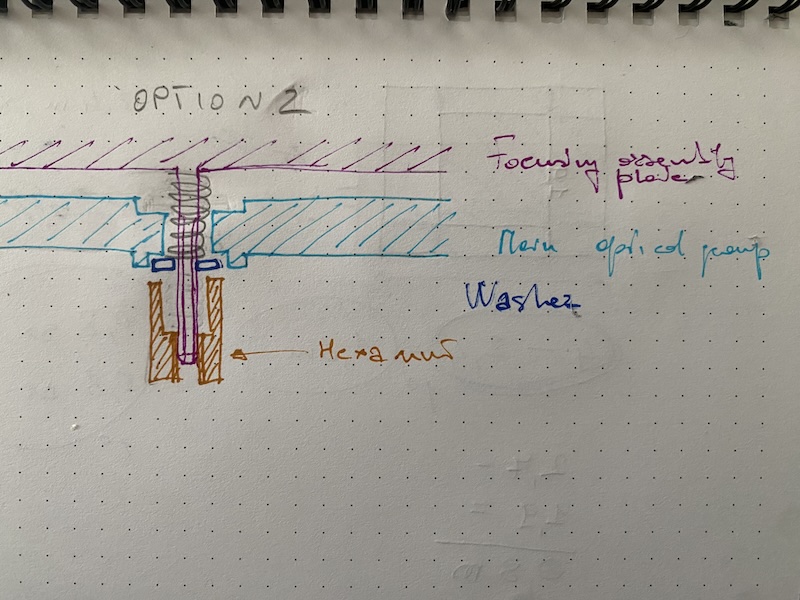 OPTION 2
Focusing assembly
plate
Main optical group
Washer
Hexa nut